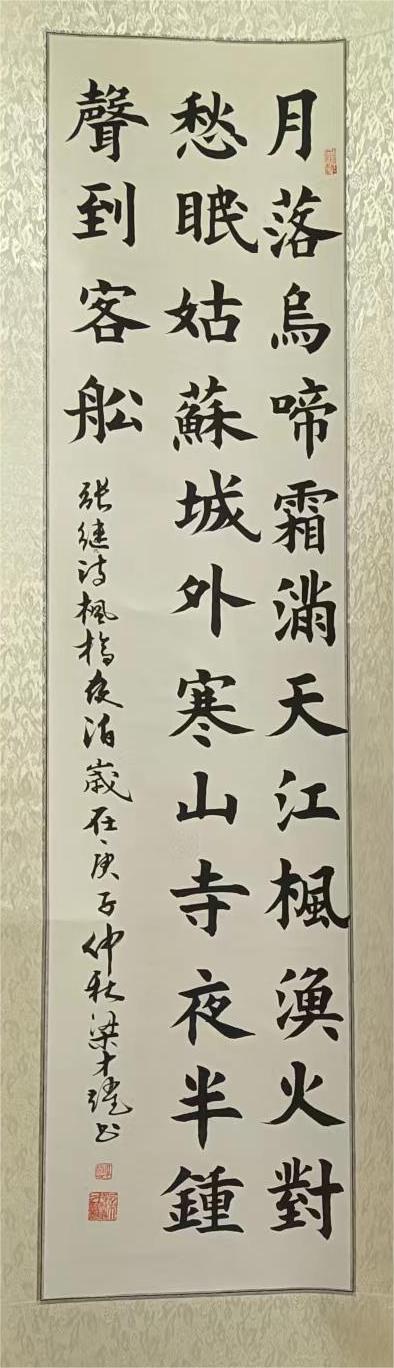 月落烏啼霜滿天江楓漁火對
愁眠姑蘇城外寒山寺夜半鍾
聲到客船
张继诗楓橋夜泊歲在庚子仲秋梁才 书